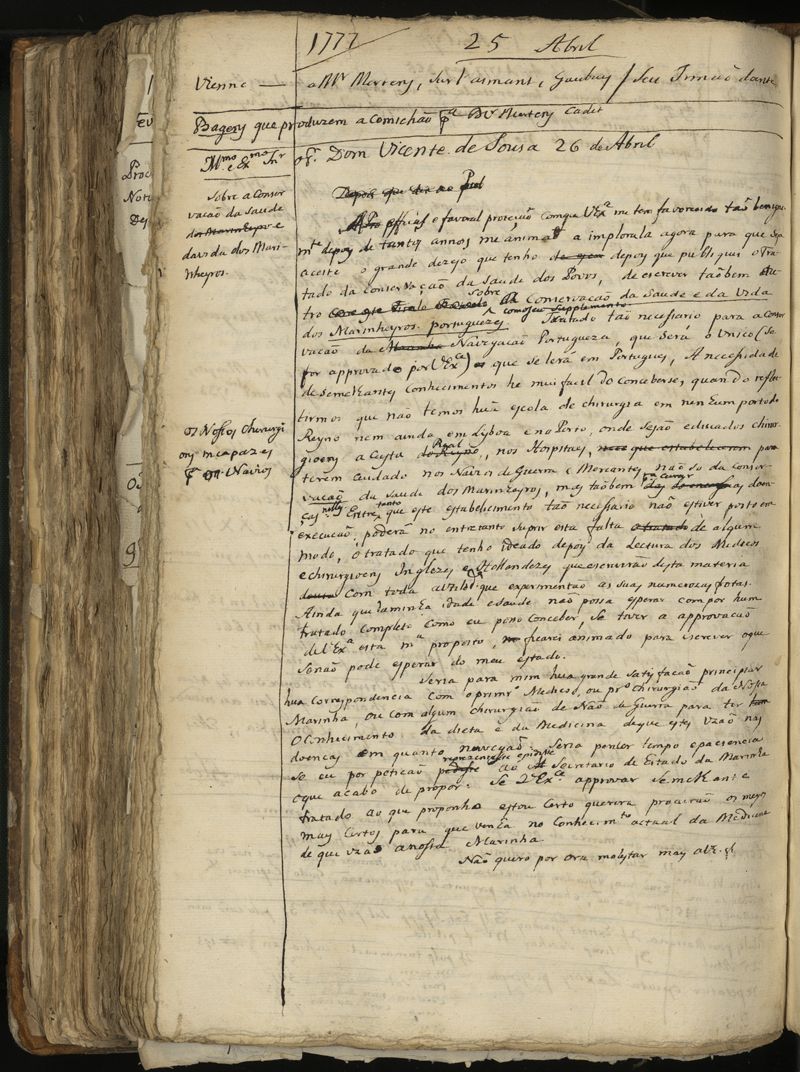 1777 25 Abril
Vienne — a Mr Mertens, sur Gaubuy / seu Irmaõ
Bagens que produzem a comichaõ Mertens Cadet
Illmo e Exmo Snr Dom Vicente de Sousa 26 de Abril
Sobre a Conser
vaçaõ da Saude
dos Marinheyros e
da vida dos Mari-
nheyros.
Depois que
efficás e favoravel proteiçaõ comque V Exa me tem favorecido taõ benigna
mte depoy de tantos annos me anima a implorala agora para que
aceite o grande dezejo que tenho depoy que publiquei o Tra-
tado da Conservaçaõ da Saude dos Povos, de escrever taõbem
tro Sobre a Conservacaõ da Saude e da Vida
dos Marinheyros portuguezes como seu supplemento Tratado taõ necessario para a Conser
vacaõ da Navegaçaõ Portugueza, que será o Unico (Se
for approvado por V Exca) que se lerá em Portugues, A necessidade
de semelKantes Conhecimentos he mui facil do Conceberse, quando reflec
tirmos que naõ temos huã escola de chirurgia em nenKum porto do
Reyno nem ainda em Lysboa e no Porto, onde sejaõ educados chirur
gioens a Custa Real, nos Hospitays, para
terem Cuidado nos Navios de Guerra e Mercantes naõ so da Conser-
vacaõ da Saude dos MarinKeyros, mas taõbem pa Curar as doen-
ças Entre tanto que este estabelecimento taõ necessario naõ estiver posto em
execucaõ, poderá no entretanto suprir esta falta de algum
modo, o tratado que tenho ideado depoy da Lectura dos Medicos
e chirurgioens Inglezes e Hollandezes que escreveraõ desta materia
Com toda a que experimentaõ as suas numerozas frotas.
Ainda que da minKa idade e saude naõ possa esperar Compor hum
tratado Completo Como eu posso Conceber, Se tiver a approvacaõ
de V Exa esta ma proposito, ficarei animado para escrever oque
Senaõ pode esperar do meu estado.
os Nossos Chirurgi
ons incapazes
pa os Navios
Seria para mim hua grande satisfacaõ principiar
hua Correspondencia Com o primro Medico, ou pro chirurgiaõ da Nossa
Marinha, ou Com algum Chirurgiaõ de Naõ de Guerra para ter
o Conhecimento da dieta e da Medicina de que estes uzaõ nas
doencas em quanto navegaõ. Seria perder tempo e paciencia
se eu por peticaõ representasse ao Secretario de Estado da Marinha
oque acabo de propor. Se V Exca approvar semelKante
tratado ao que proponho estou Certo querera procuraõ os meyos
mays Certos para que venKa no Conhecimto actual da Medicina
de que uza a nossa Marinha
Naõ quero por ora molestar mays a V E